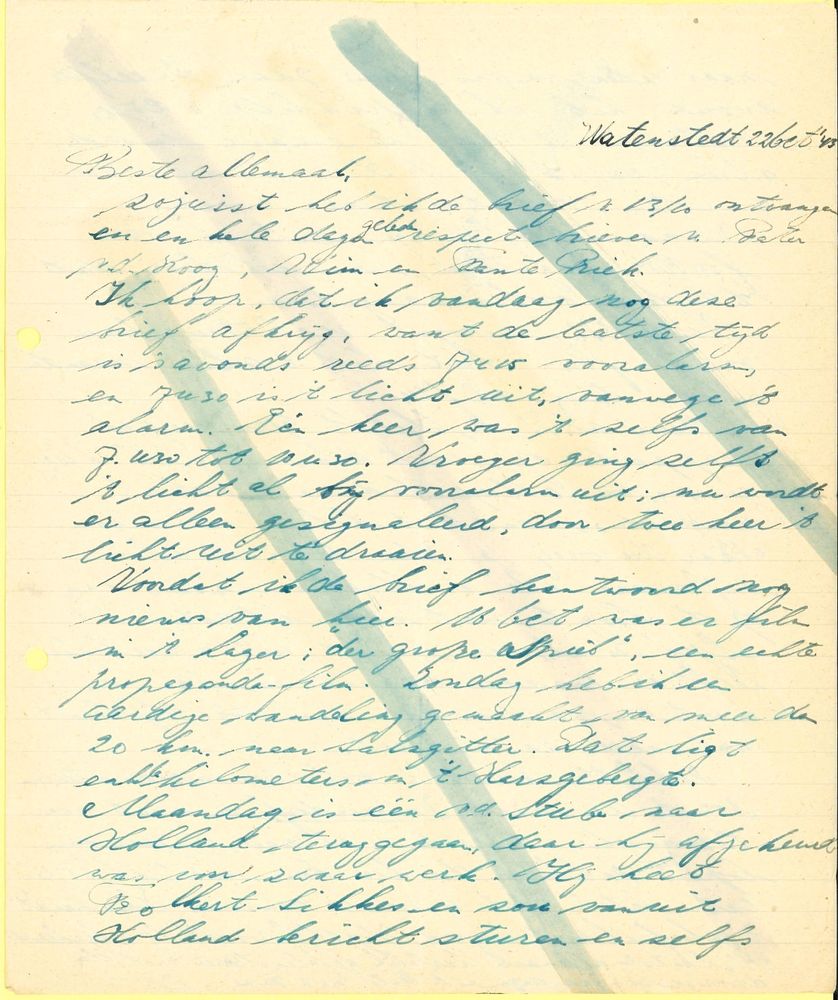 Watenstedt 22 Oct '43
Beste allemaal,
zojuist heb ik de brief v. 13/10 ontvangen
en enkele dagen geleden respect. brieven v. Pater
v.d. Koog, Wim en Tante Riek.
Ik hoop, dat ik vandaag nog deze
brief afkrijg, want de laatste tijd
is 's avonds reeds 7u15 vooralarm,
en 7u30 is 't licht uit, vanwege 't
alarm. Eén keer was 't zelfs van
7.u30 tot 10u30. Vroeger ging zelfs
't licht al bij vooralarm uit; nu wordt
er alleen gesignaleerd, door twee keer 't
licht uit te draaien.
Voordat ik de brief beantwoord nog
nieuws van hier. 16 Oct was er film
in 't Lager; "der große Spiel", een echte
propaganda-film. Zondag heb ik een
aardige wandeling gemaakt van meer dan
20 km. naar Salzgitter. Dat ligt
enkele kilometers in 't Harzgebergte.
Maandag is één v.d. Stube naar
Holland teruggegaan, daar hij afgekeurd
was voor zwaar werk. Hij heet
Folkert Sikkes en zou vanuit
Holland bericht sturen en zelfs